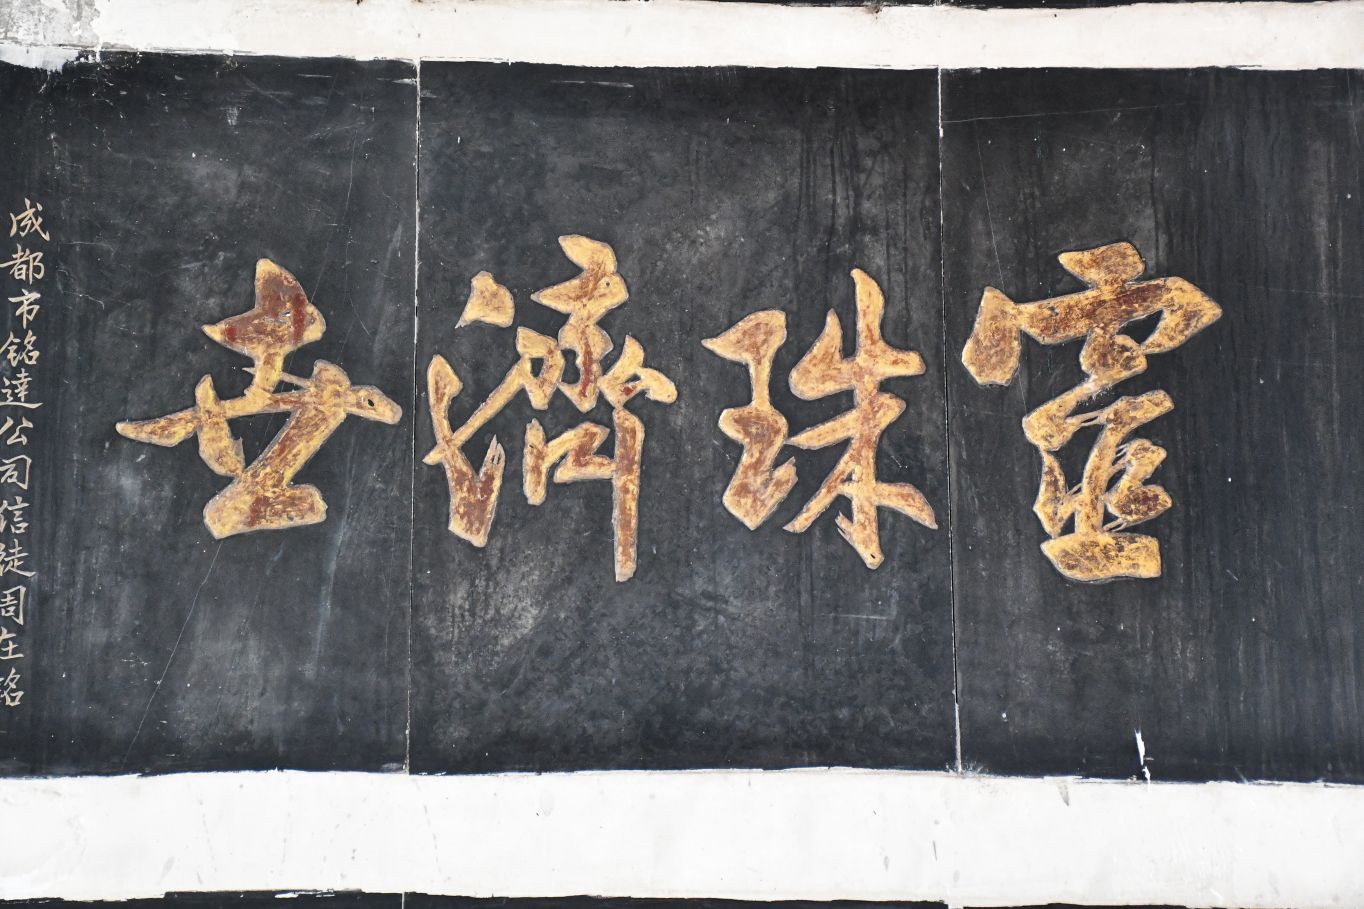 靈珠濟世
成都市銘達公司信徒周在銘